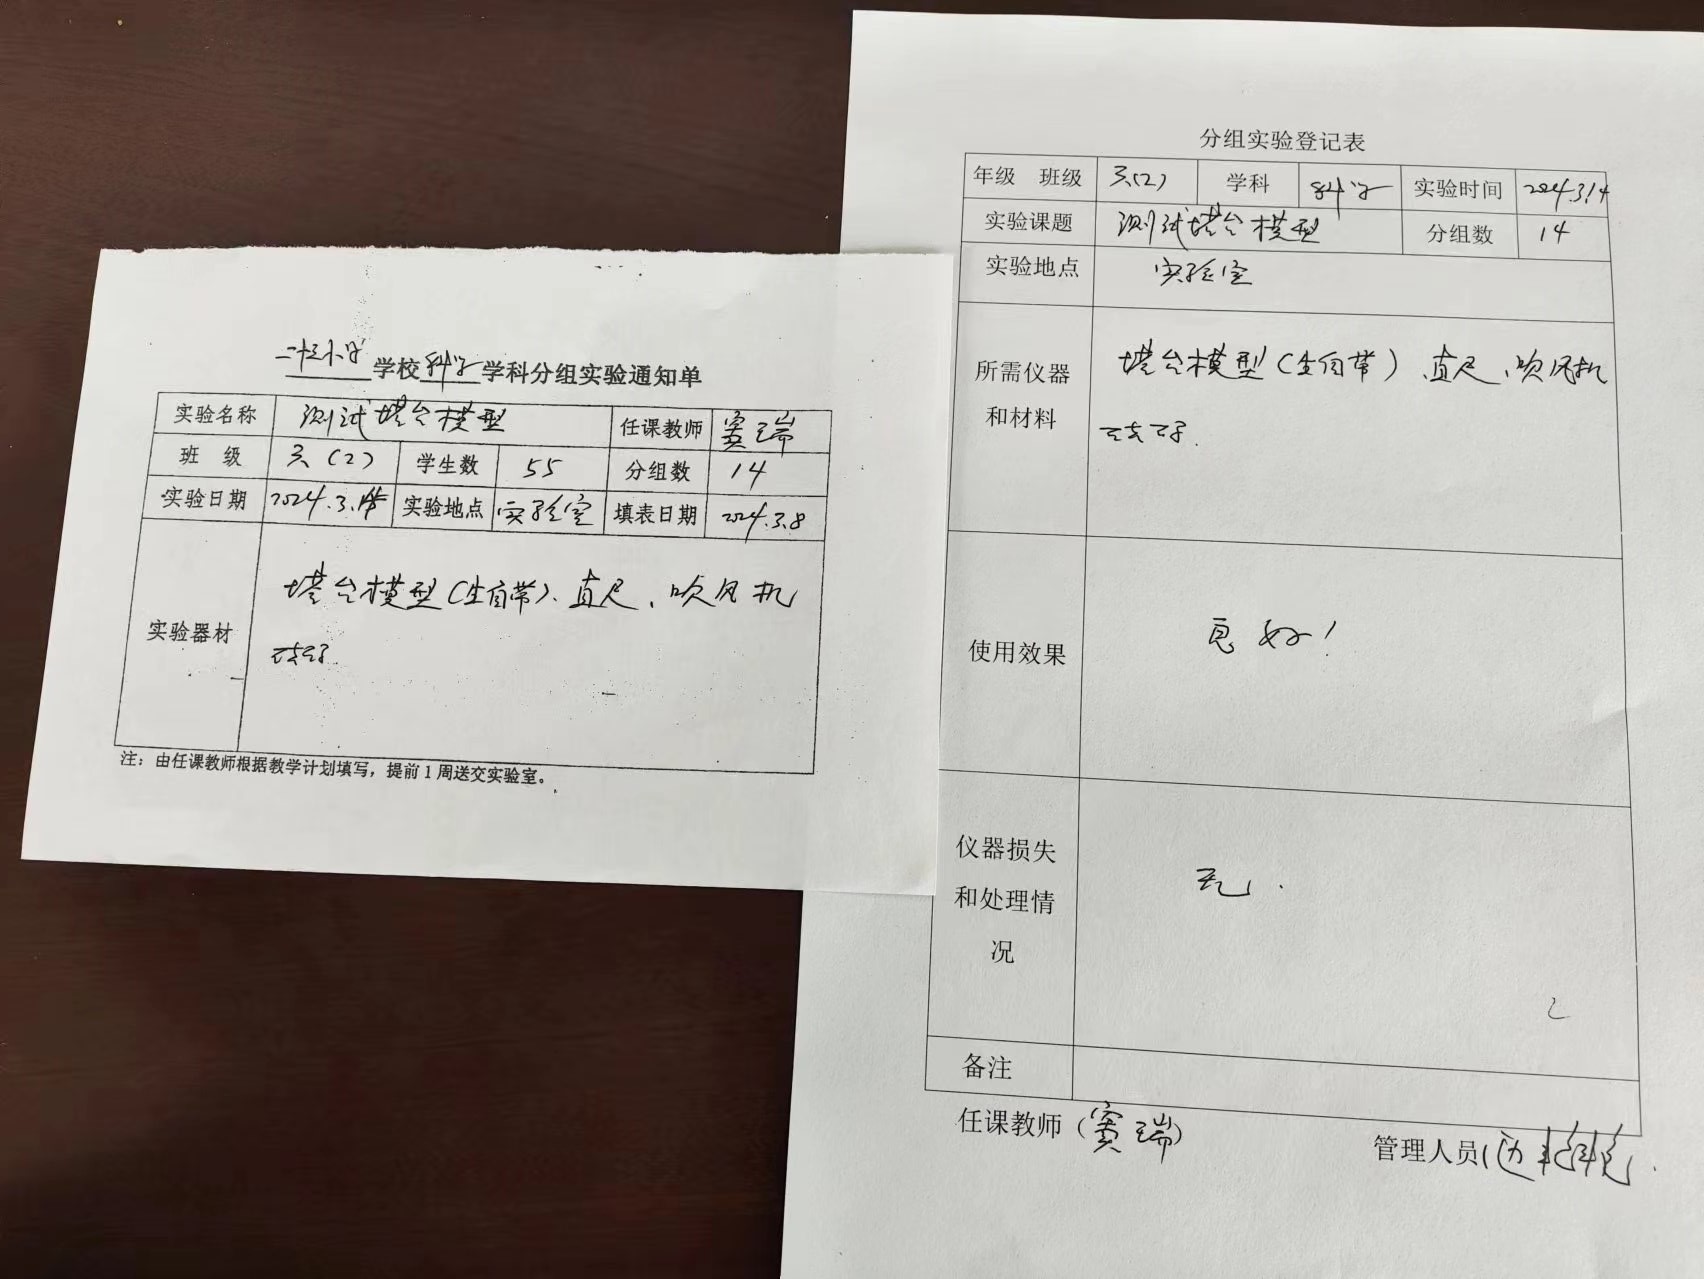 二十三小学学校科学学科分组实验通知单
实验名称 测试塔台模型 任课教师 窦瑞
班 级 六(2) 学生数 55 分组数 14
实验日期 2024.3.14 实验地点 实验室 填表日期 2024.3.8
实验器材 塔台模型(生自带)、直尺、吹风机
注:由任课教师根据教学计划填写,提前1周送交实验室。
分组实验登记表
年级 班级 六(2) 学科 科学 实验时间 2024.3.14
实验课题 测试塔台模型 分组数 14
实验地点 实验室
所需仪器
和材料
塔台模型(生自带)、直尺、吹风机
使用效果 良好!
仪器损失
和处理情
况
无.
备注
任课教师(窦瑞)
管理人员(边